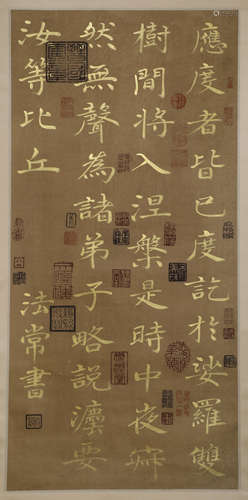 應度者皆已度訖於娑羅雙
樹間將入涅槃是時中夜寂
然無聲為諸弟子略說灋要
汝等比丘
法常書